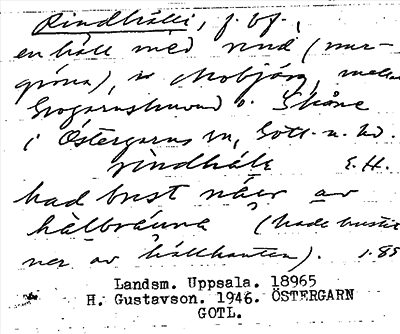 Rindhälli, f. bf.,
en häll med rind (mur-
gröna), Mobjärg, mellan
Grogarnshuvud o. Skåne
i Östergarns sn, Gotl. n. hd.
rindhäle E.H.
had brist näer av
hälbräunа (hade brustit
ner av hällkanten). 1.85
Landsm. Uppsala. 18965
H. Gustavson. 1946. ÖSTERGARN
GOTL.